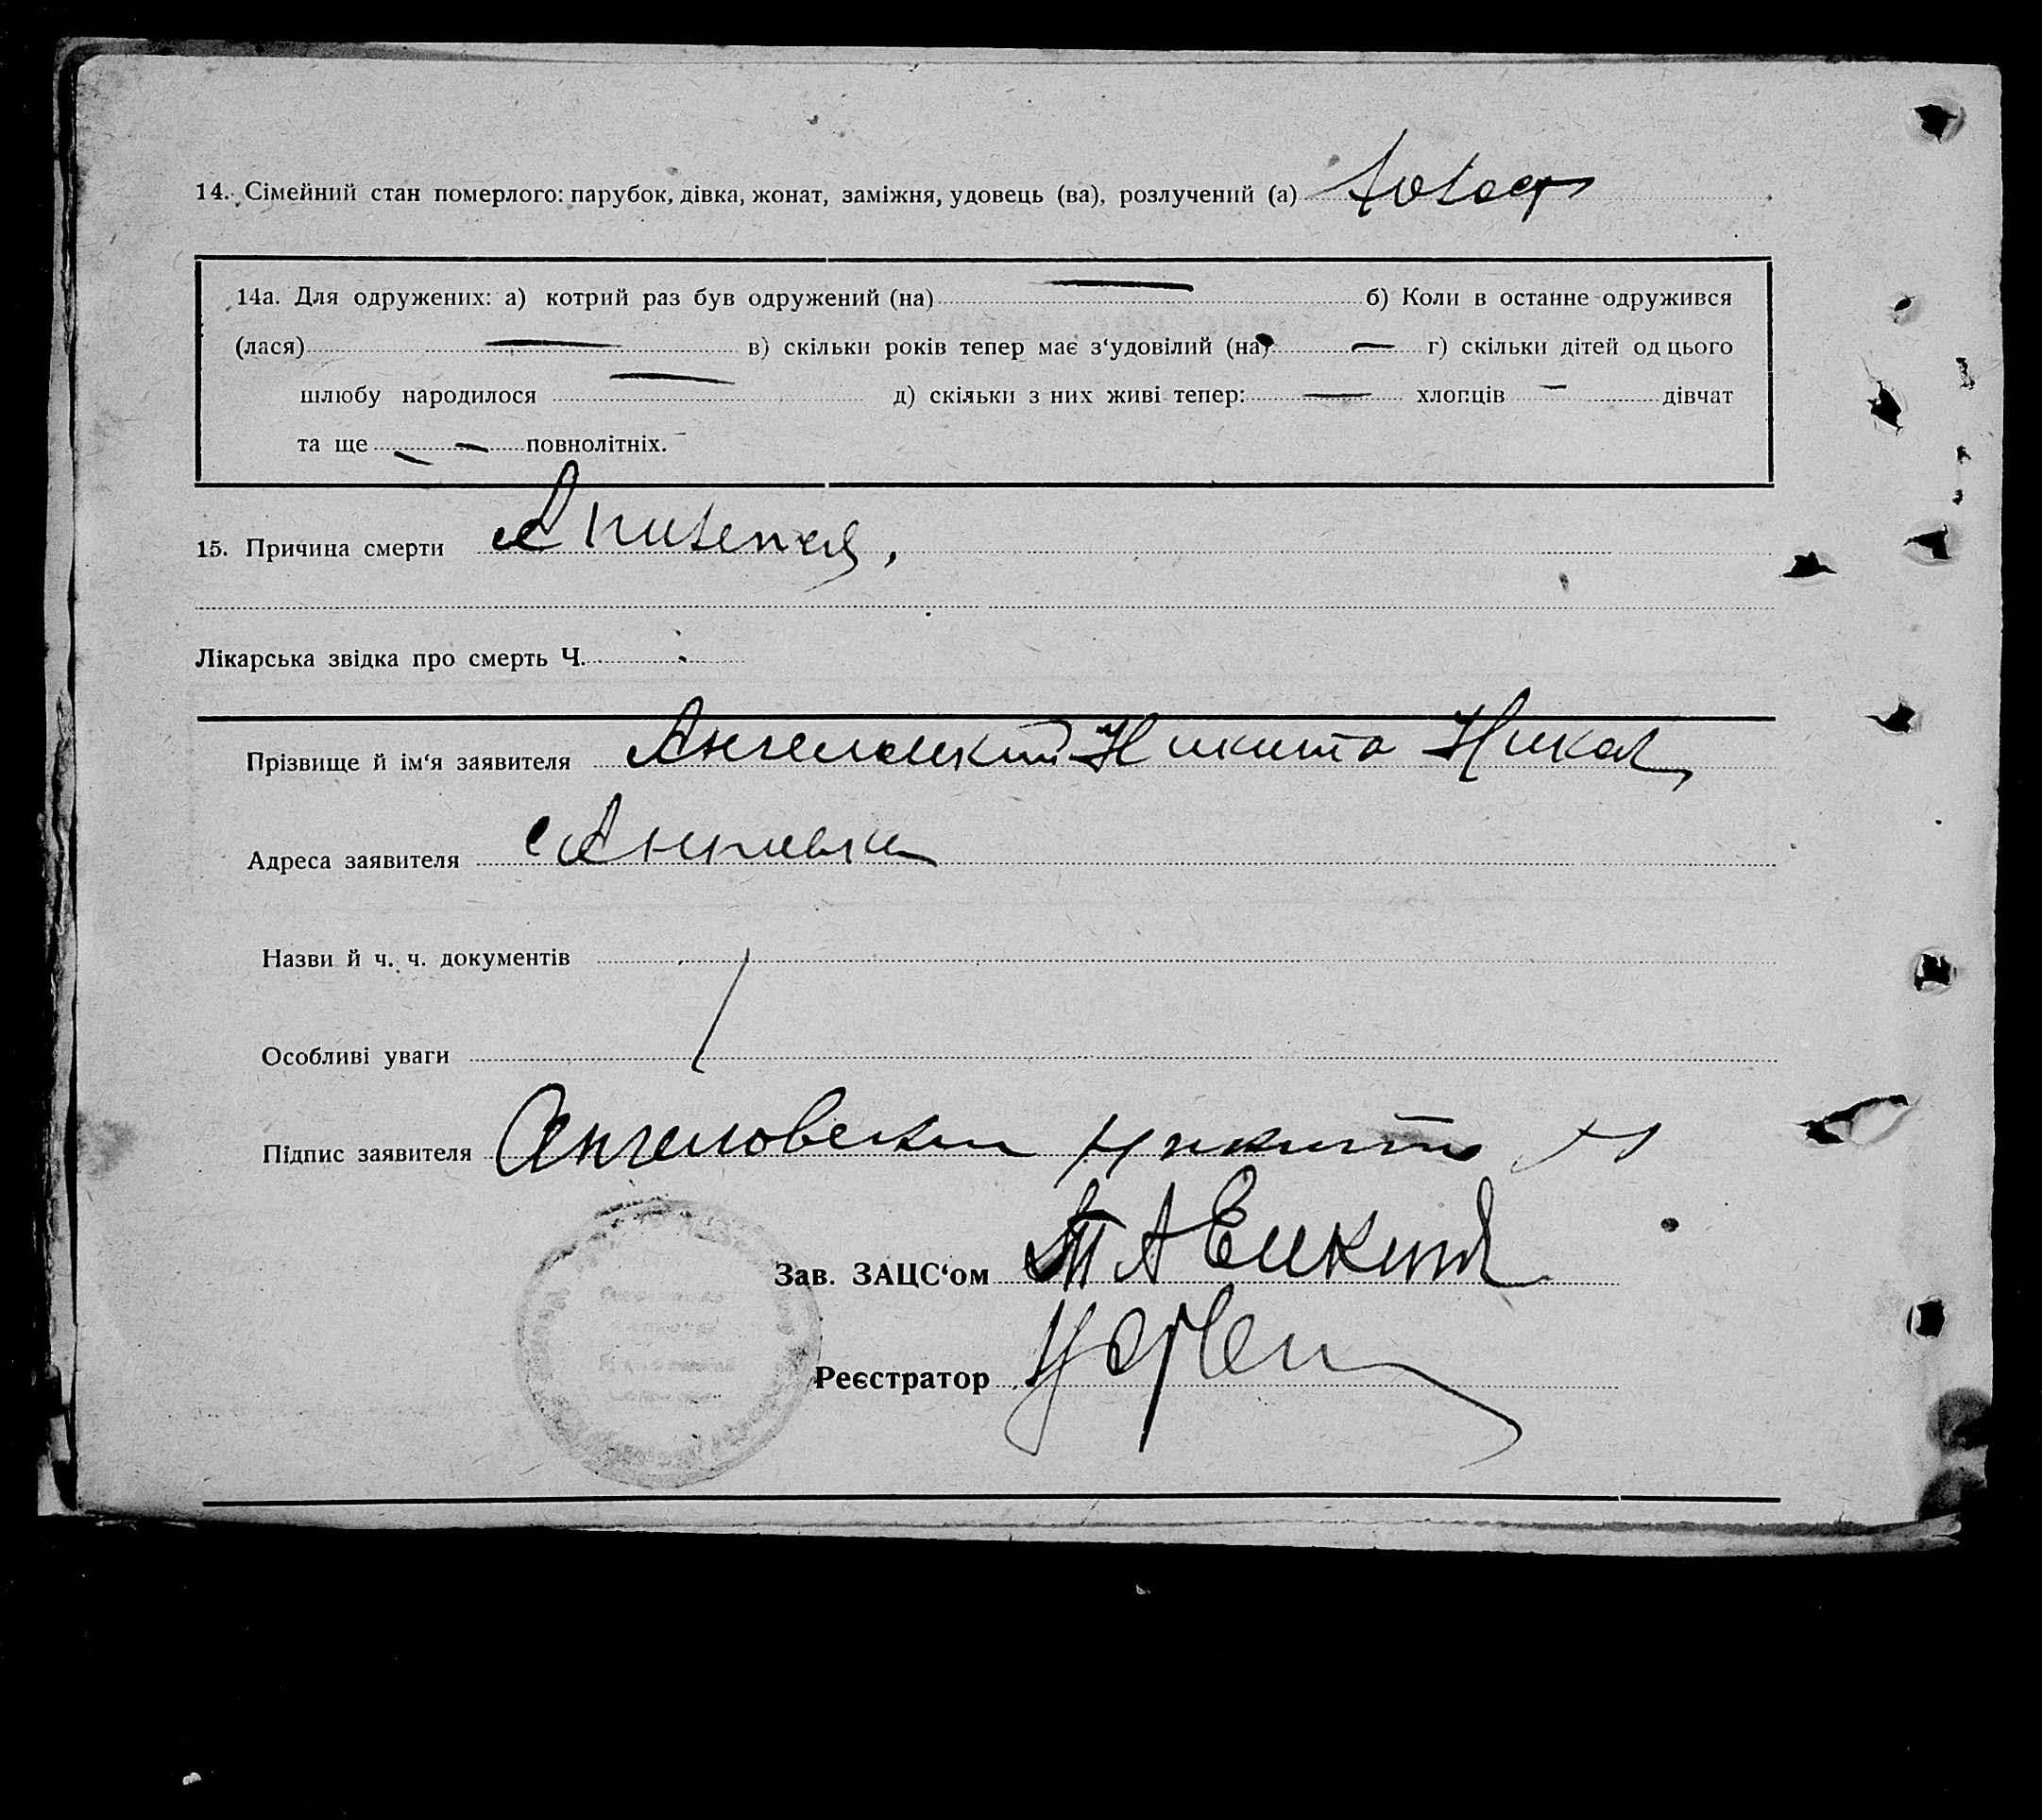 14. Сімейний стан померлого: парубок, дівка, жонат, заміжня, удовець (ва), розлучений (а) холост
14а. Для одружених: а) котрий раз був одружений (на) — б) Коли в останне одружився
(лася) — в) скільки років тепер має з‘удовілий (на) — г) скільки дітей од цього
шлюбу народилося — д) скільки з них живі тепер: — хлопців — дівчат
та ще — повнолітніх.
15. Причина смерти
Лікарська звідка про смерть Ч.
Прізвище й ім‘я заявителя Ангеловский Никита Никол,
Адреса заявителя
Назви й ч. ч. документів
Особливі уваги
Підпис заявителя Ангеловский Никита Н
Зав. ЗАЦС‘ом
Реєстратор